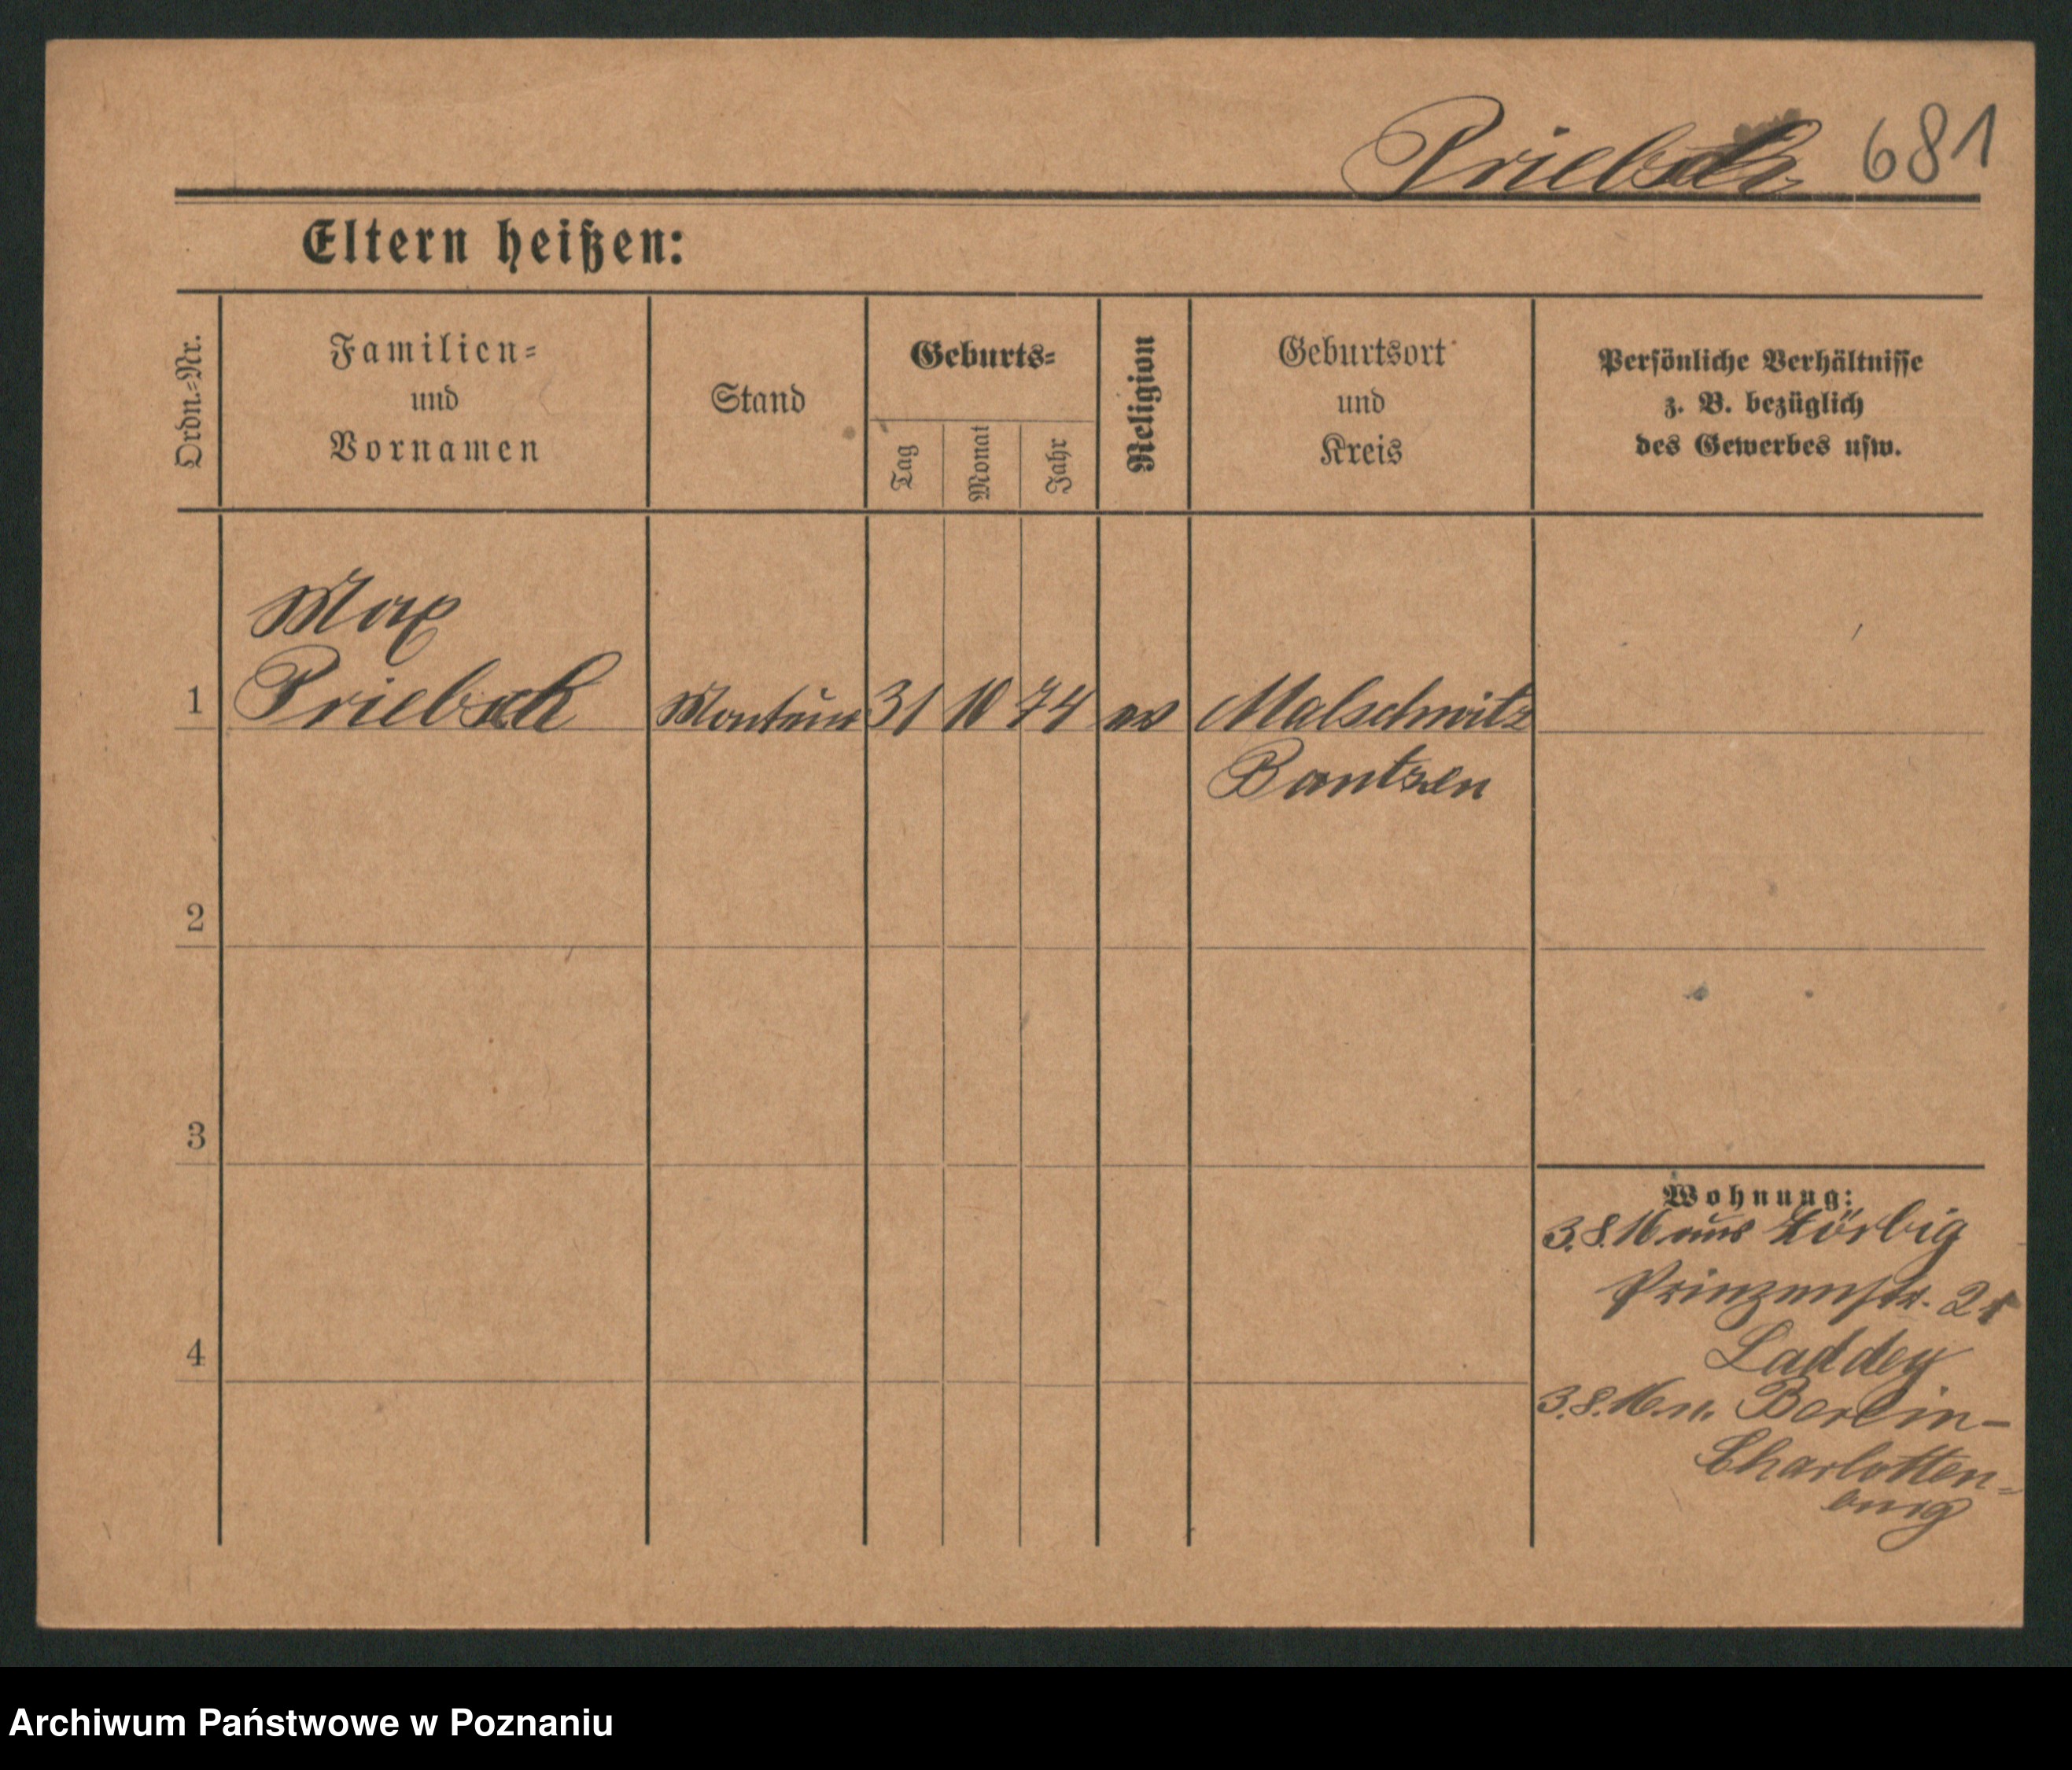 Priebsch 681
Eltern heißen:
Ordn.-Nr.
Familien-
und
Vornamen
Stand
Geburts-
Tag
Monat
Jahr
Religion
Geburtsort
und
Kreis
Persönliche Verhältnisse
z. B. bezüglich
des Gewerbes usw.
Max
1 Priebsch Monteur 31 10 74 ev Malschwitz
Bautzen
2
3
Wohnung:
3.8.16 aus Zörbig
Prinzenstr. 21
4
3.8.16 n. Berlin-
Charlotten-
burg
Archiwum Państwowe w Poznaniu